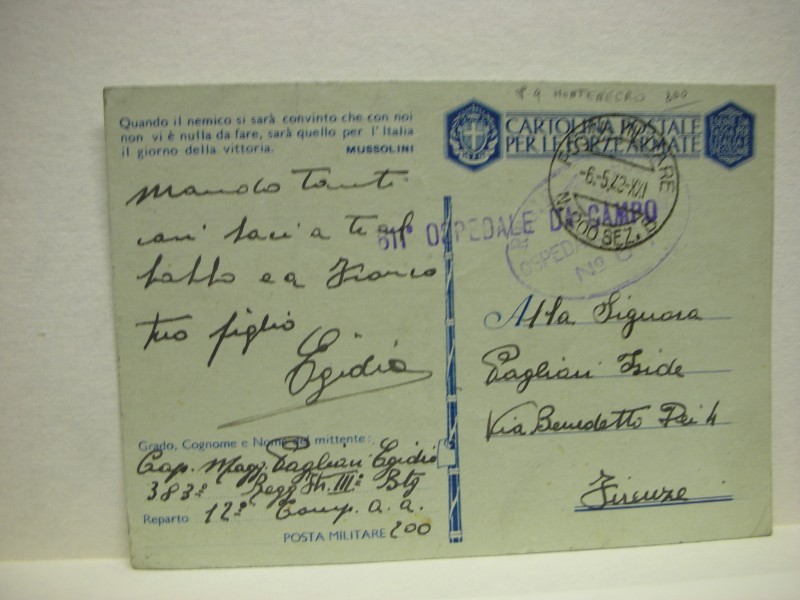 P. M. MONTENEGRO 200
Quando il nemico si sarà convinto che con noi
non vi è nulla da fare, sarà quello per l'Italia
il giorno della vittoria. MUSSOLINI
CARTOLINA POSTALE
PER LE FORZE ARMATE
POSTA MILITARE
-6.-5.42-XX
N. 200 SEZ. B
OSPEDALE DA CAMPO
OSPEDALE
Nº
Mando Tanti
cari baci a te al
babbo e a Franco
tuo figlio
Egidio
Alla Signora
Pagliari Iside
Via Benedetto Dei 4
Firenze
Grado, Cognome e Nome del mittente:
Cap. Magg. Pagliari Egidio
383º Regg Ftr. IIIº Btg
Reparto 12º Comp. a. a.
POSTA MILITARE 200